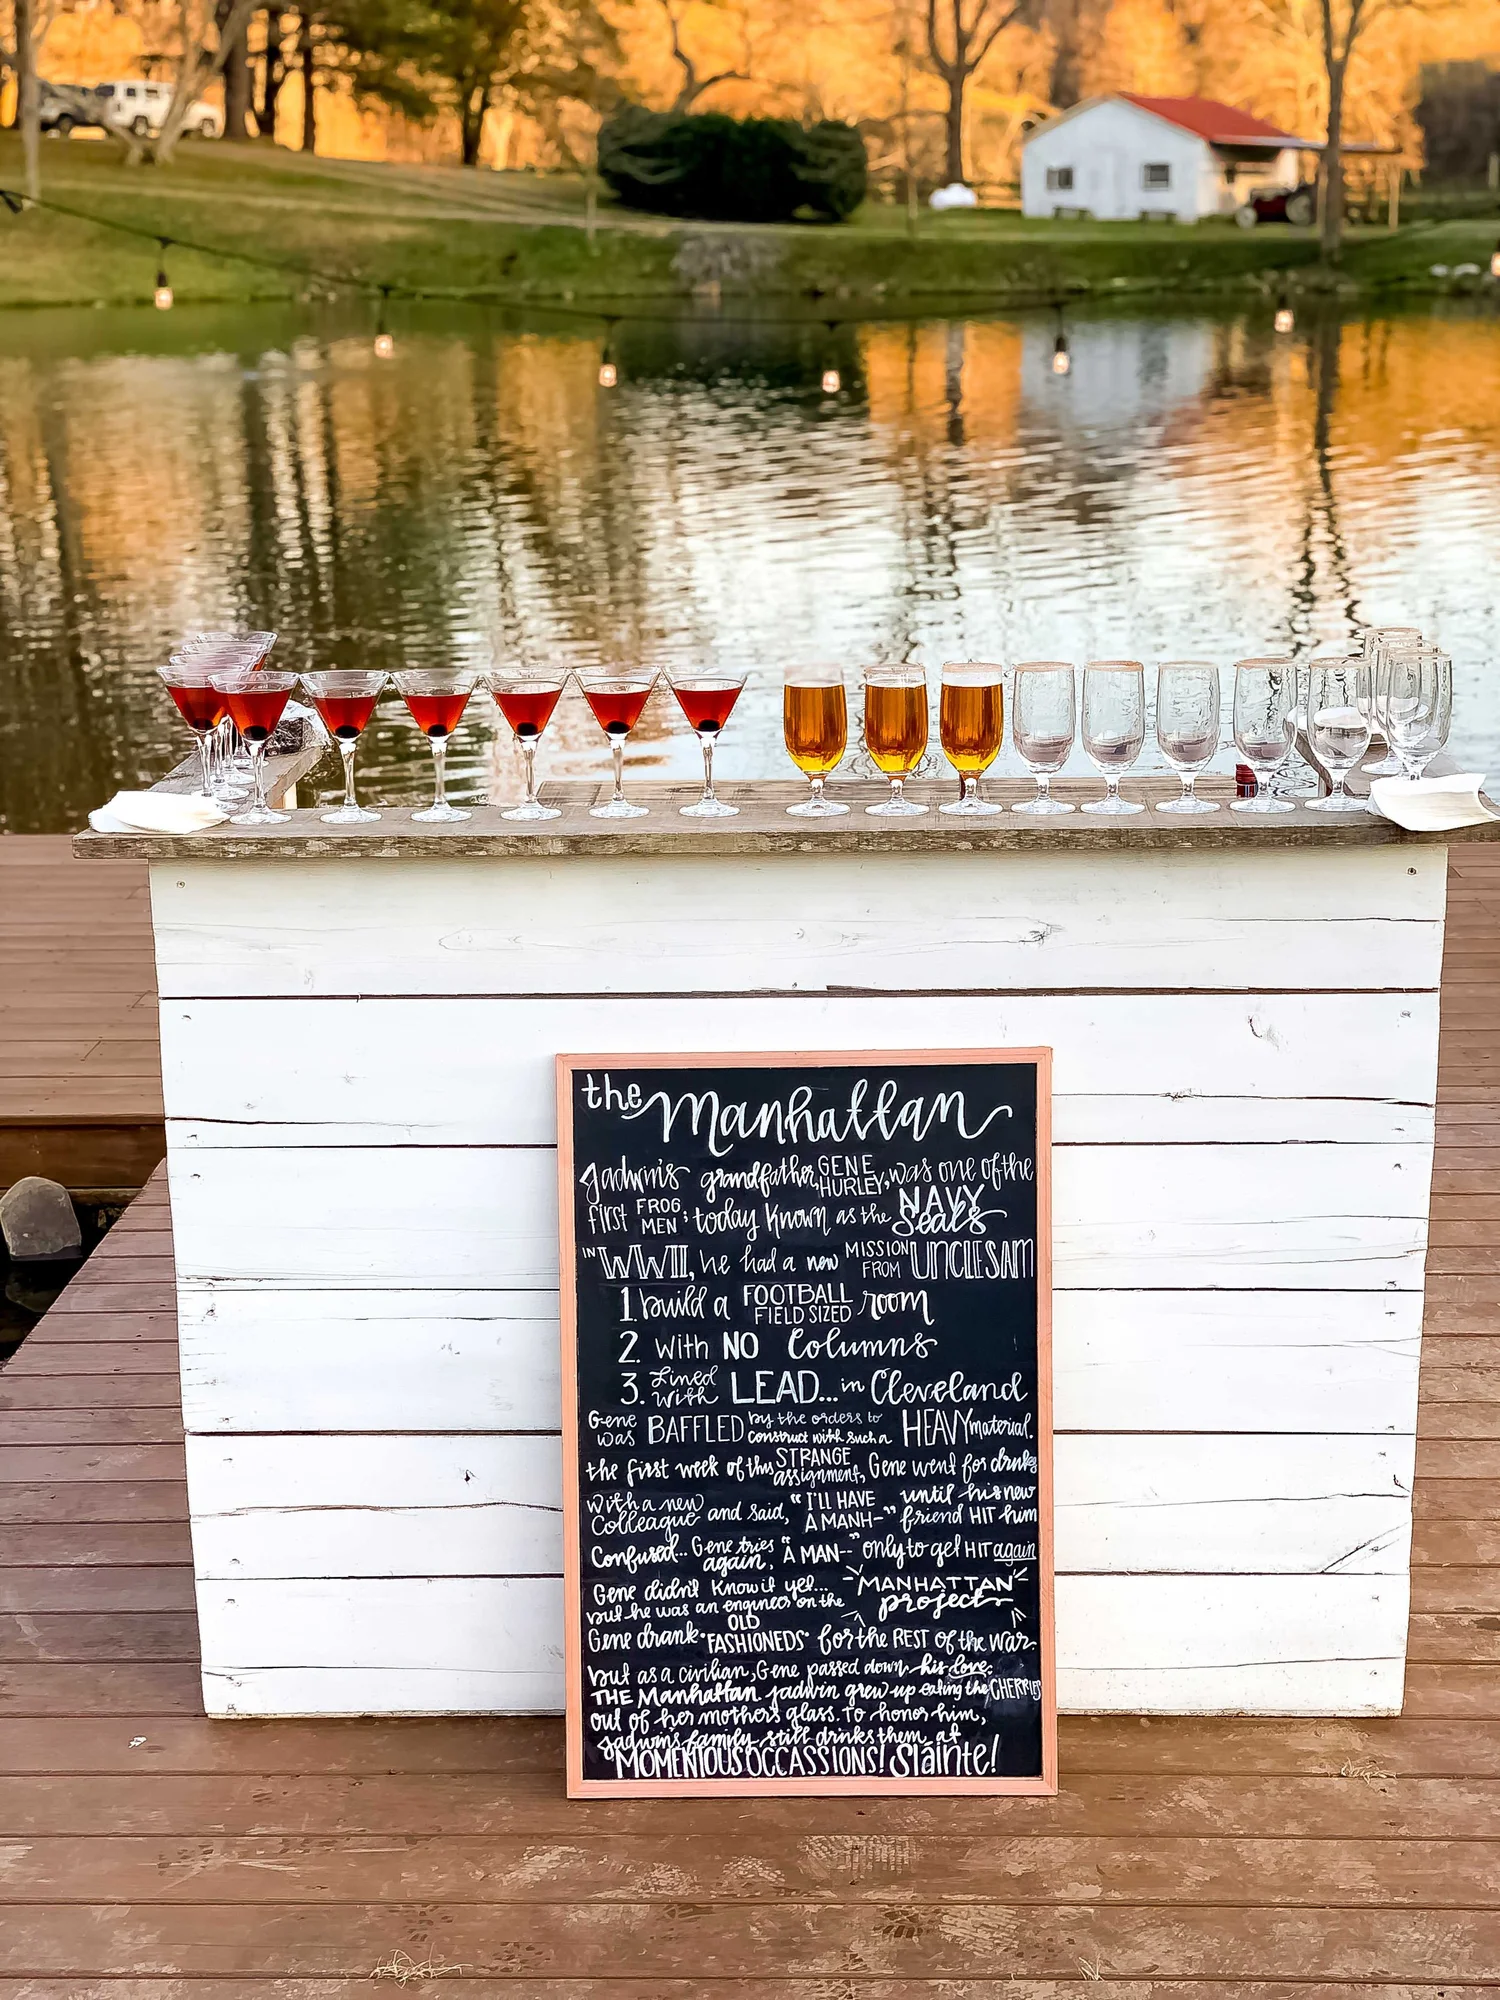 the Manhattan
Jadwin's grandfather, GENE HURLEY, was one of the
first FROG MEN; today known as the NAVY Seals
IN WWII, he had a new MISSION FROM UNCLE SAM
1. build a FOOTBALL FIELD SIZED room
2. With NO Columns
3. Lined with LEAD... in Cleveland
Gene was BAFFLED by the orders to construct with such a HEAVY material.
the first week of this STRANGE assignment, Gene went for drinks
with a new Colleague and said, "I'LL HAVE A MANH-" until his new friend HIT him
Confused... Gene tries again, "A MAN--" only to get HIT again
Gene didn't know it yet... but he was an engineer on the MANHATTAN project
Gene drank "OLD FASHIONEDS" for the REST of the war.
but as a civilian, Gene passed down his love:
THE Manhattan. Jadwin grew up eating the CHERRIES
out of her mother's glass. To honor him,
Jadwin's family still drinks them at
MOMENTOUS OCCASSIONS! Sláinte!